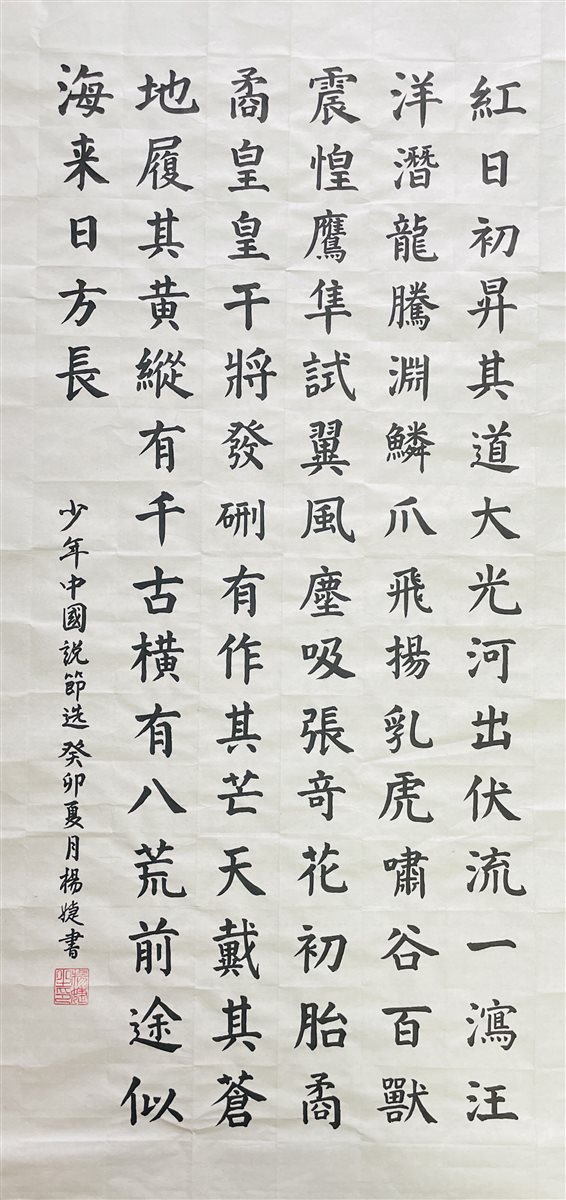 紅日初昇其道大光河出伏流一瀉汪
洋潛龍騰淵鱗爪飛揚乳虎嘯谷百獸
震惶鷹隼試翼風塵吸張奇花初胎矞
矞皇皇干將發硎有作其芒天戴其蒼
地履其黃縱有千古橫有八荒前途似
海来日方長
少年中國説節选癸卯夏月楊婕書